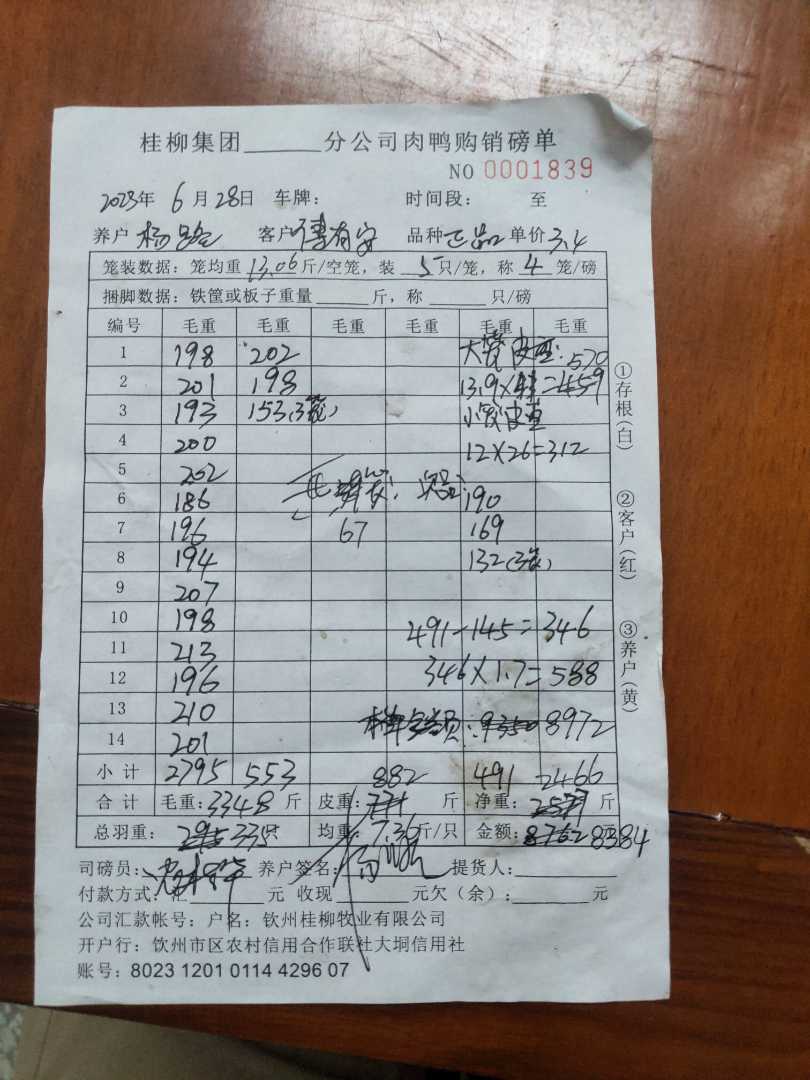 桂柳集团______分公司肉鸭购销磅单
NO 0001839
2023年 6月28日 车牌： 时间段： 至
养户 杨 客户 有安 品种 正品 单价 3.4
笼装数据：笼均重 13.06 斤/空笼，装 5 只/笼，称 4 笼/磅
捆脚数据：铁筐或板子重量______斤，称______只/磅
编号 毛重 毛重 毛重 毛重 毛重 毛重
1 198 202 大笼皮重：570
2 201 198 13.9× =459
3 193 153(3笼) 小笼皮重
4 200 12×26=312
5 202
6 186 190
7 196 67 169
8 194 132(3笼)
9 207
10 198 491-145=346
11 213
12 196 346×1.7=588
13 210
14 201 9350 8972
小计 2795 553 882 491 2466
合计 毛重：3348斤 皮重： 斤 净重： 斤
总羽重： 335只 均重：7.36斤/只 金额： 8384元
司磅员： 养户签名： 提货人：
付款方式：汇______元 收现______元欠（余）：______元
公司汇款帐号：户名：钦州桂柳牧业有限公司
开户行：钦州市区农村信用合作联社大垌信用社
账号：8023 1201 0114 4296 07
①存根(白)
②客户(红)
③养户(黄)